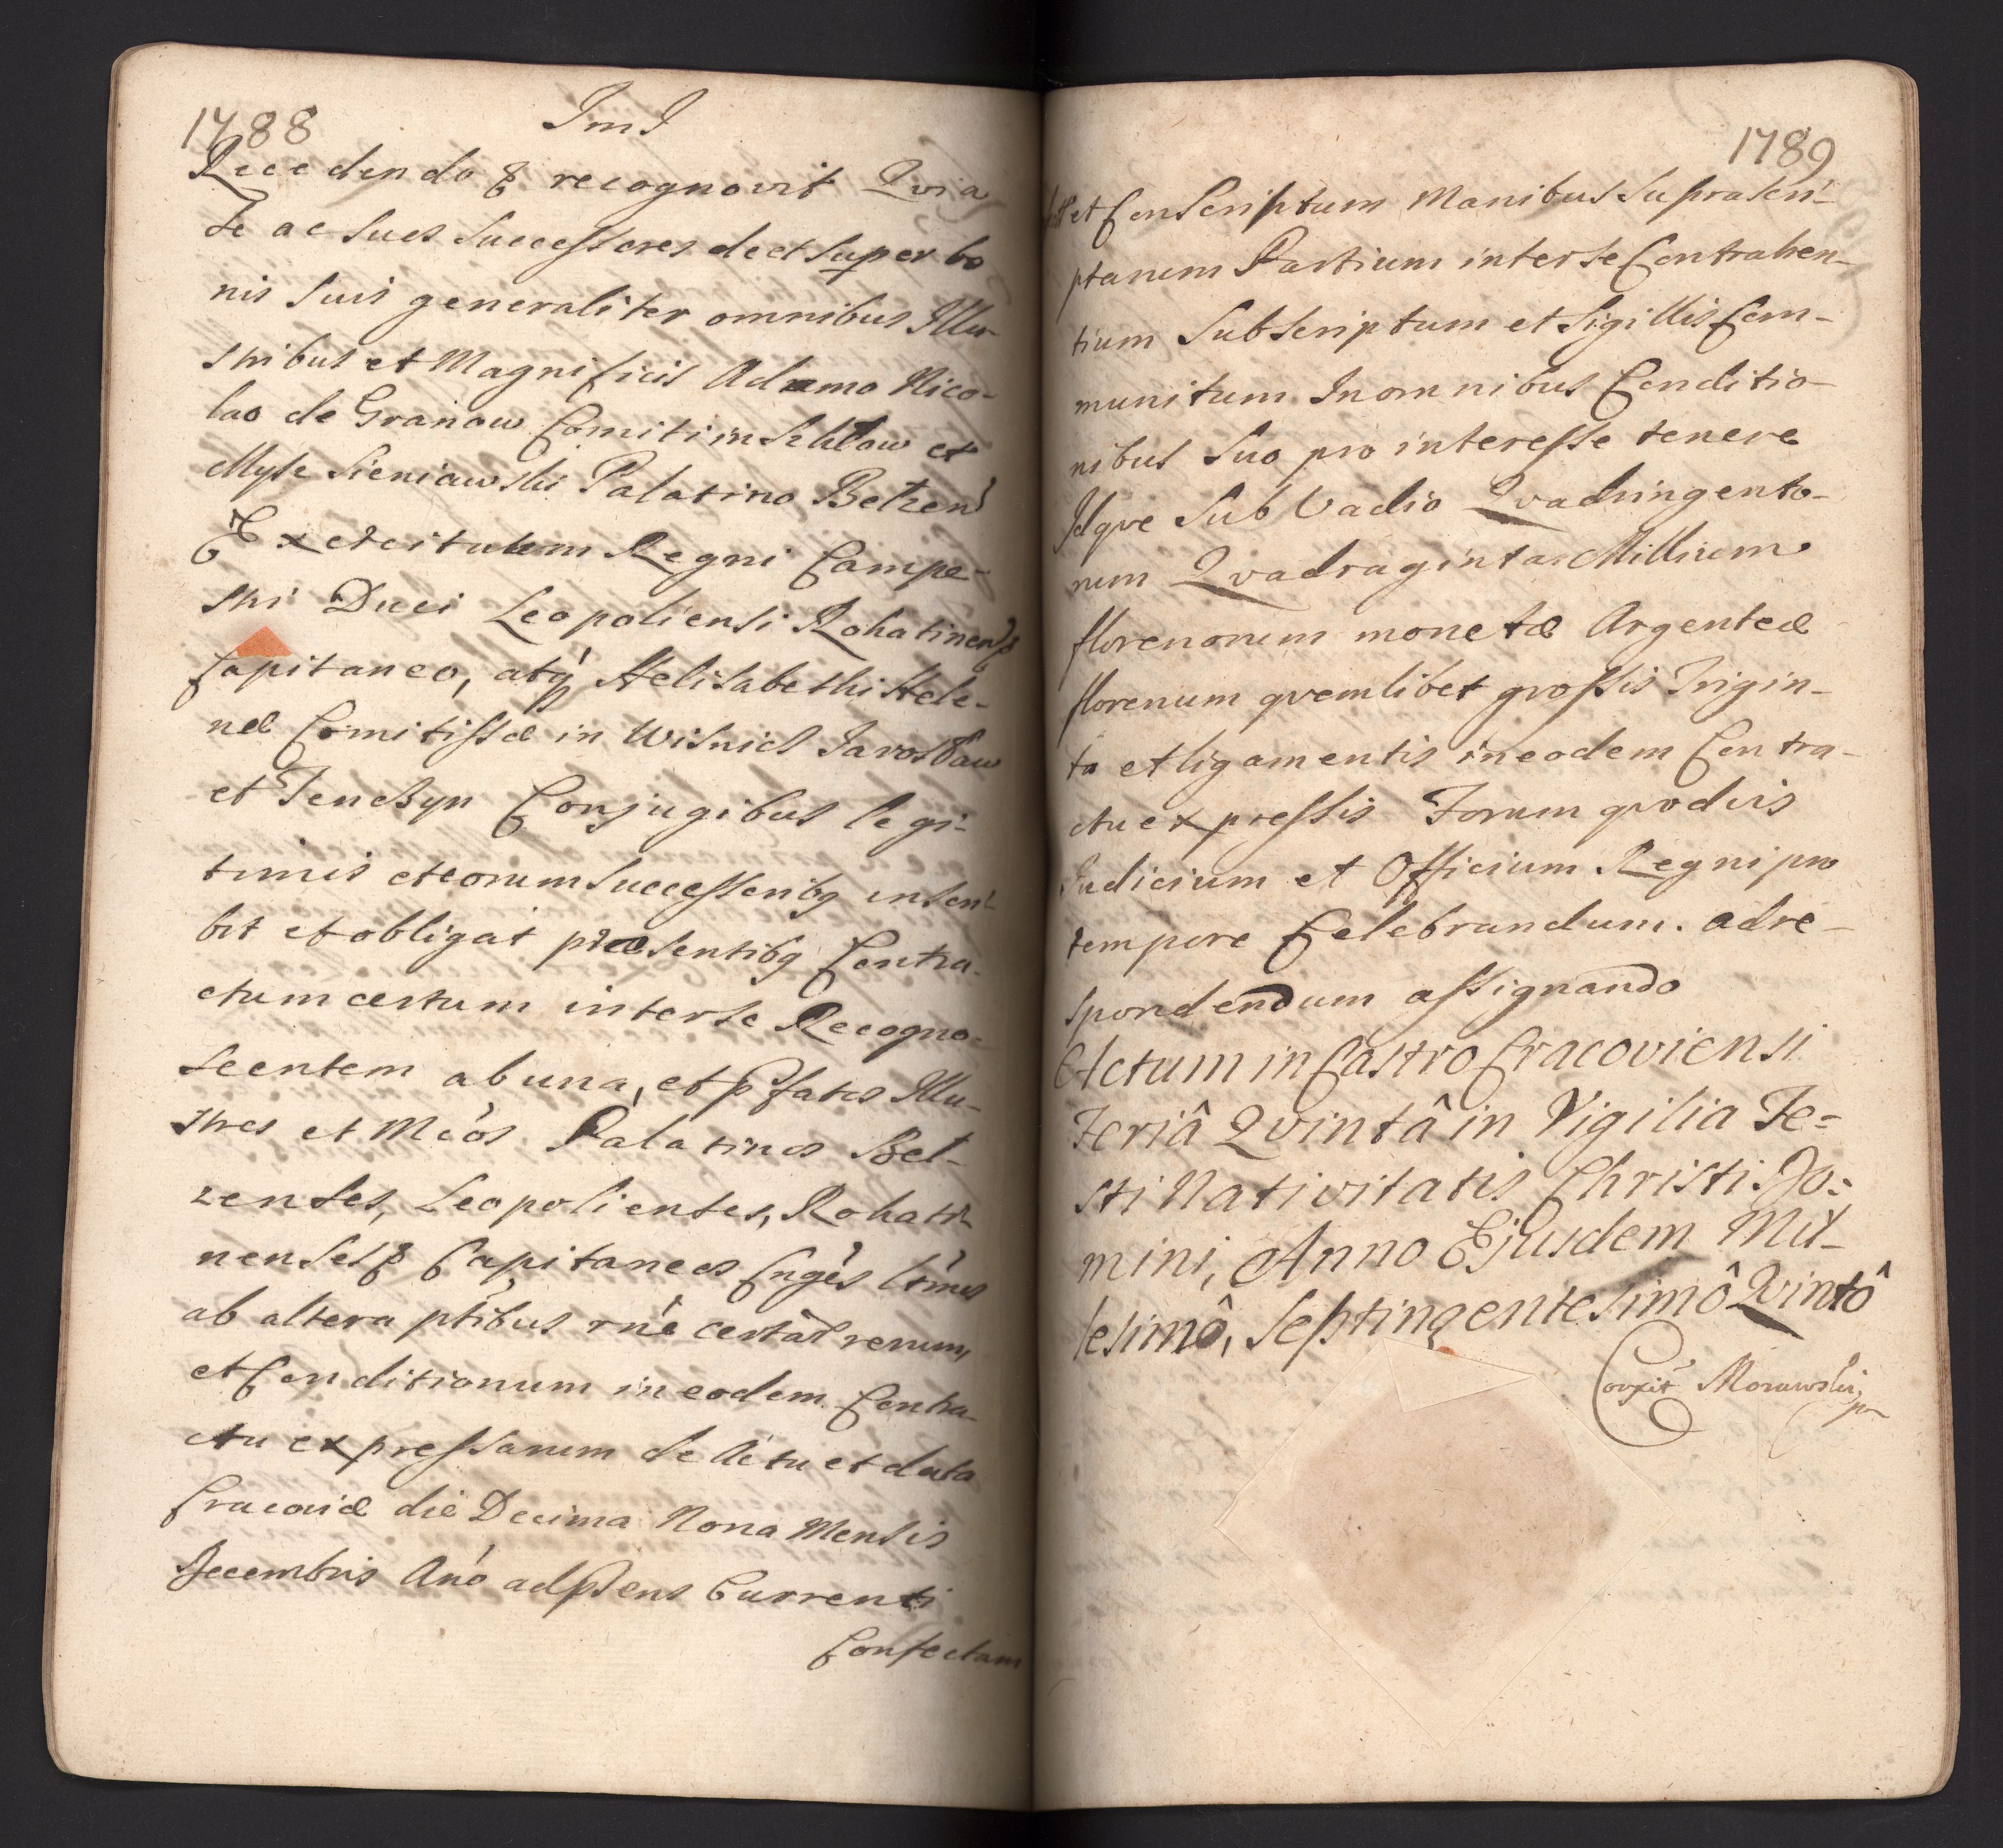 1788
Recedendo & recognovit Qvia
Se ac Suos Successores de et Super bo
nis Suis generaliter omnibus Illu-
stribus et Magnificis Adamo Nico-
lao de Granow Comiti in Szkłow et
Mysz Sieniawski Palatino Belzen
Exercituum Regni Campe-
stri Duci Leopoliensi Rohatinen &
Capitaneo, atq Helisabethi Hele-
næ Comitissæ in Wisnicz Jarosław
et Tenczyn Conjugibus legi-
timis et eorum Successoribq inscri-
bit et obligat præsentibq Contra-
ctum certum inter se Recogno-
scentem ab una, et Pfatos Illu-
stres et Mcos Palatinos Bel-
zenses, Leopolienses, Rohati-
nenses & Capitaneos Cnges ltmos
ab altera ptibus rne certar rerum,
et Conditionum in eodem Contra-
ctu expressarum de Actu et data
Cracoviæ die Decima Nona Mensis
Decembris Ano ad Psens Currenti
Confectum
1789
et Conscriptum Manibus Suprascri-
ptarum Partium inter se Contrahen-
tium Subscriptum et Sigillis Com-
munitum In omnibus Conditio-
nibus Suo pro interesse tenere
Idqve Sub Vadio Qvadringento-
rum Qvadraginta Millium
florenorum monetæ Argenteæ
florenum qvemlibet grossis Trigin-
ta et ligamentis in eodem Contra-
ctu expressis Forum qvodvis
Judicium et Officium Regni pro
tempore Celebrandum. ad re-
spondendum assignando
Actum in Castro Cracoviensi
Feriâ Qvintâ in Vigilia Fe=
sti Nativitatis Christi Do=
mini, Anno Ejusdem Mil-
lesimô, Septingentesimô Qvintô
Corxit Morawski